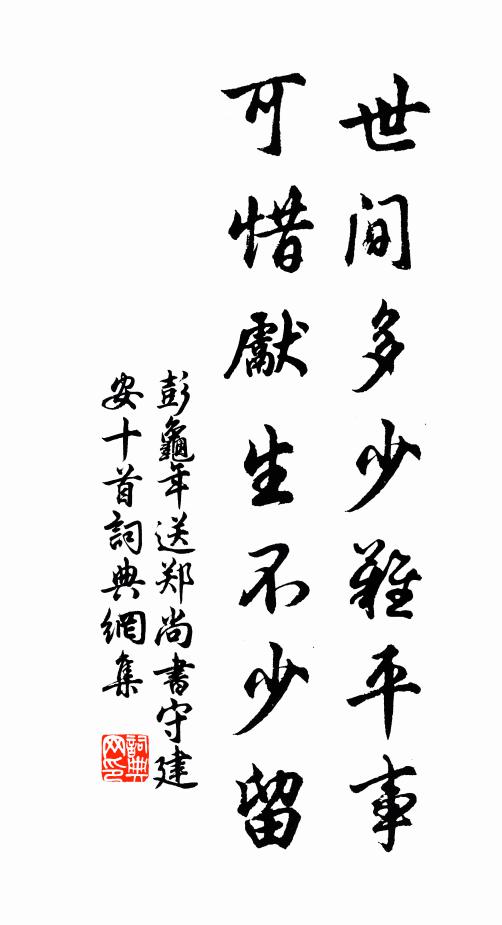 世間多少難平事
可惜獻生不少留
彭龜年送郑尚書守建
安十首詞典網集
詞典
网印